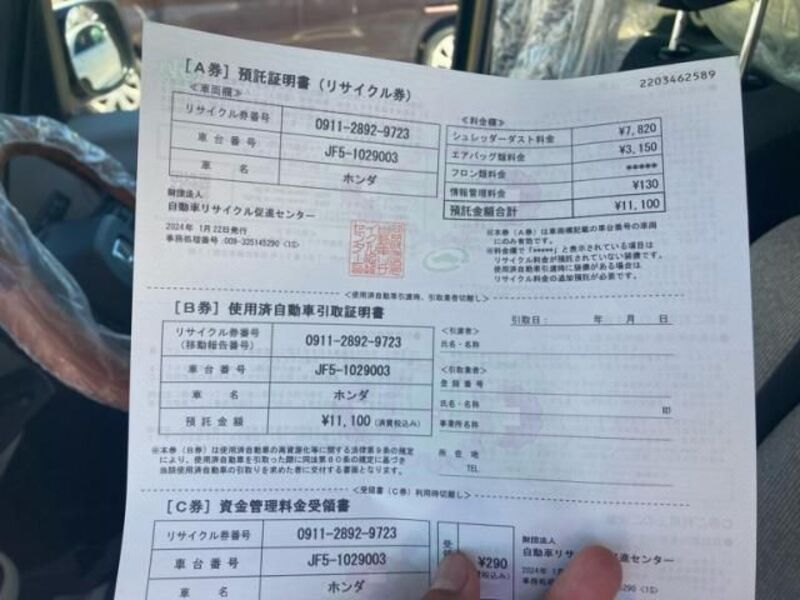 2203462589
[A券] 預託証明書（リサイクル券）
≪車両欄≫
リサイクル券番号 0911-2892-9723
車台番号 JF5-1029003
車名 ホンダ
財団法人
自動車リサイクル促進センター
2024年 1月22日発行
事務処理番号:009-335145290 <1S>
≪料金欄≫
シュレッダーダスト料金 ¥7,820
エアバッグ類料金 ¥3,150
フロン類料金 *****
情報管理料金 ¥130
預託金額合計 ¥11,100
※本券（A券）は車両欄記載の車台番号の車両
にのみ有効です。
※料金欄で「*****」と表示されている項目は
リサイクル料金が預託されていない装備です。
使用済自動車引渡時に装備がある場合は
リサイクル料金の追加預託が必要です。
<使用済自動車引渡時、引取業者切離し>
[B券] 使用済自動車引取証明書
リサイクル券番号
(移動報告番号) 0911-2892-9723
車台番号 JF5-1029003
車名 ホンダ
預託金額 ¥11,100 (消費税込み)
引取日: 年 月 日
<引渡者>
氏名・名称
<引取業者>
登録番号
氏名・名称 印
事業所名称
所在地
TEL
※本券（B券）は使用済自動車の再資源化等に関する法律第9条の規定
により、使用済自動車を引取った際に同法第80条の規定に基づき
当該使用済自動車の引取りを求めた者に交付する書面となります。
<受領書（C券）利用時切離し>
[C券] 資金管理料金受領書
リサイクル券番号 0911-2892-9723
車台番号 JF5-1029003
車名 ホンダ
¥290
税込み)
財団法人
自動車リサ 促進センター
2024年
事務処理
5290 <1S>